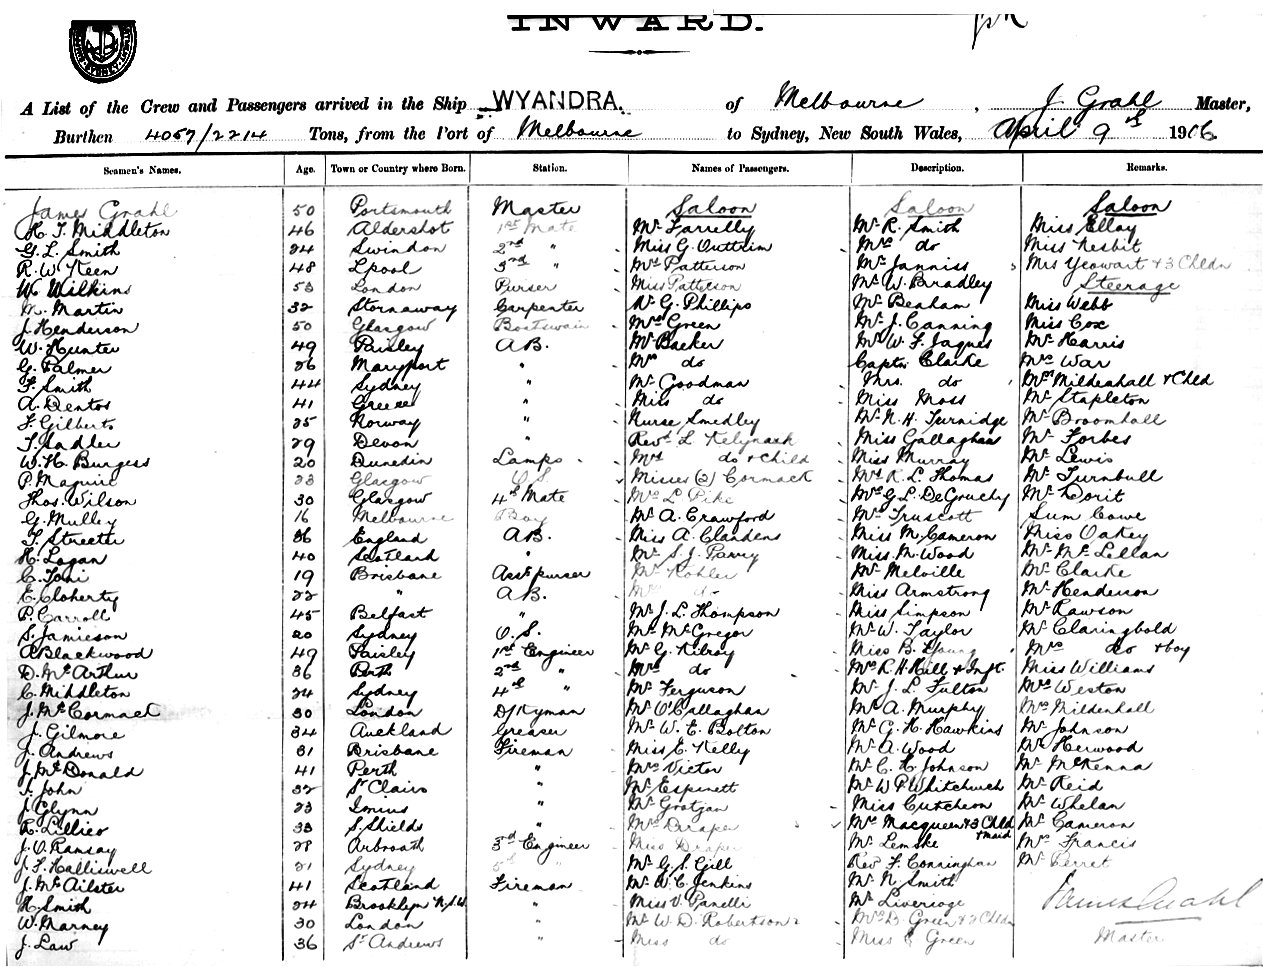 INWARD.
A List of the Crew and Passengers arrived in the Ship WYANDRA. of Melbourne, J Grahl Master,
Burthen 4057/2214 Tons, from the Port of Melbourne to Sydney, New South Wales, April 9th 1906
Seamen's Names. Age. Town or Country where Born. Station. Names of Passengers. Description. Remarks.
James Grahl 50 Portsmouth Master Saloon Saloon Saloon
H. J. Middleton 46 Aldershot 1st Mate Mr Farrelly Mr R. Smith Miss Elloy
G. L. Smith 24 Swindon 2nd " Miss G. Outtrim Mrs do Miss Nesbit
R. W. Keen 48 Lpool 3rd " Mrs Patterson Mr Janniss Mrs Yeowart + 3 Chldn
W. Wilkins 53 London Purser Miss Patterson Mr W. Bradley Steerage
M. Martin 32 Stornaway Carpenter Dr G. Phillips Mr Benham Miss Webb
J. Henderson 50 Glasgow Boatswain Mrs Green Mr J. Canning Miss Cox
W. Hunter 49 Paisley A.B. Mr Backer Mr W. F. Jaques Mr Harris
G. Palmer 26 Maryport " Mrs do Captn Clarke Mrs War
F. Smith 44 Sydney " Mr Goodman Mrs. do Mrs Mildenhall + Chld
A. Dentos 41 Greece " Miss do Miss Moss Mr Stapleton
F. Gilberts 25 Norway " Nurse Smedley Mr N. H. Turnidge Mr Broomhall
T. Sadler 29 Devon " Revd. L. Kelynack Miss Gallaghan Mr Forbes
W. H. Burgess 20 Dunedin Lamps Mrs do + Child Miss Murray Mr Lewis
P. Maguire 23 Glasgow O.S. Misses (2) Cormack Mrs R. L. Thomas Mr Turnbull
Thos. Wilson 30 Glasgow 4th Mate Mrs L Pike Mrs G. L. DeGruchy Mr Dorit
G. Mulley 16 Melbourne Boy Mr A. Crawford Mr Truscott Sum Cowe
T. Streeth 36 England A.B. Miss A. Clandens Miss M. Cameron Miss Oakey
H. Logan 40 Scotland " Mr S. J. Parry Miss M. Wood Mr McLellan
C. Toni 19 Brisbane Asst. purser Mr Kohler Mr Melville Mr Clarke
E. Cloherty 22 " A.B. Mrs do Miss Armstrong Mr Henderson
P. Carroll 45 Belfast " Mr J. L. Thompson Miss Simpson Mr Rawson
S. Jamieson 20 Sydney O.S. Mr McGregor Mr W. Taylor Mr Claringbold
A Blackwood 49 Paisley 1st Engineer Mr G. Kilroy Miss B. Young Mrs do + boy
D. McArthur 36 Perth 2nd " Mrs do Mrs R. H. Hill + Inft Miss Williams
C. Middleton 24 Sydney 4th " Mr Ferguson Mr J. L. Fulton Mrs Weston
J. McCormack 30 London D/Kyman Mr O'Callaghan Mr A. Murphy Mrs Mildenhall
J. Gilmore 34 Auckland Greaser Mr W. E. Bolton Mr G. H. Hawkins Mr Johnson
J. Andrews 31 Brisbane Fireman Miss E. Kelly Mr A. Wood Mr Herwood
J. McDonald 41 Perth " Mrs Victor Mr C. H. Johnson Mr McKenna
T. John 32 St Clairs " Mr Espinett Mr W P Whitchurch Mr Reid
J. Glynn 23 " Mr Gratzan Miss Cutcheon Mr Whelan
R. Lillies 33 S. Shields " Mrs Draper Mrs Macqueen + 3 Chld + maid Mr Cameron
J. O. Ramsay 28 Arbroath 3rd Engineer Miss Draper Mr Lemske Mrs Francis
J. F. Halliswell 21 Sydney 5th " Mr G. S. Gill Rev F. Conninghan Mr Perret
J. McAilster 41 Scotland Fireman Mr W. C. Jenkins Mr N. Smith
H. Smith 24 Brooklyn N.S.W. " Miss V. Panelli Mr Liveridge James Grahl
W. Marney 30 London " Mr W. D. Robertson Mrs D. Green + 2 Chldn
J. Law 36 St Andrews " Miss do Miss E Green Master